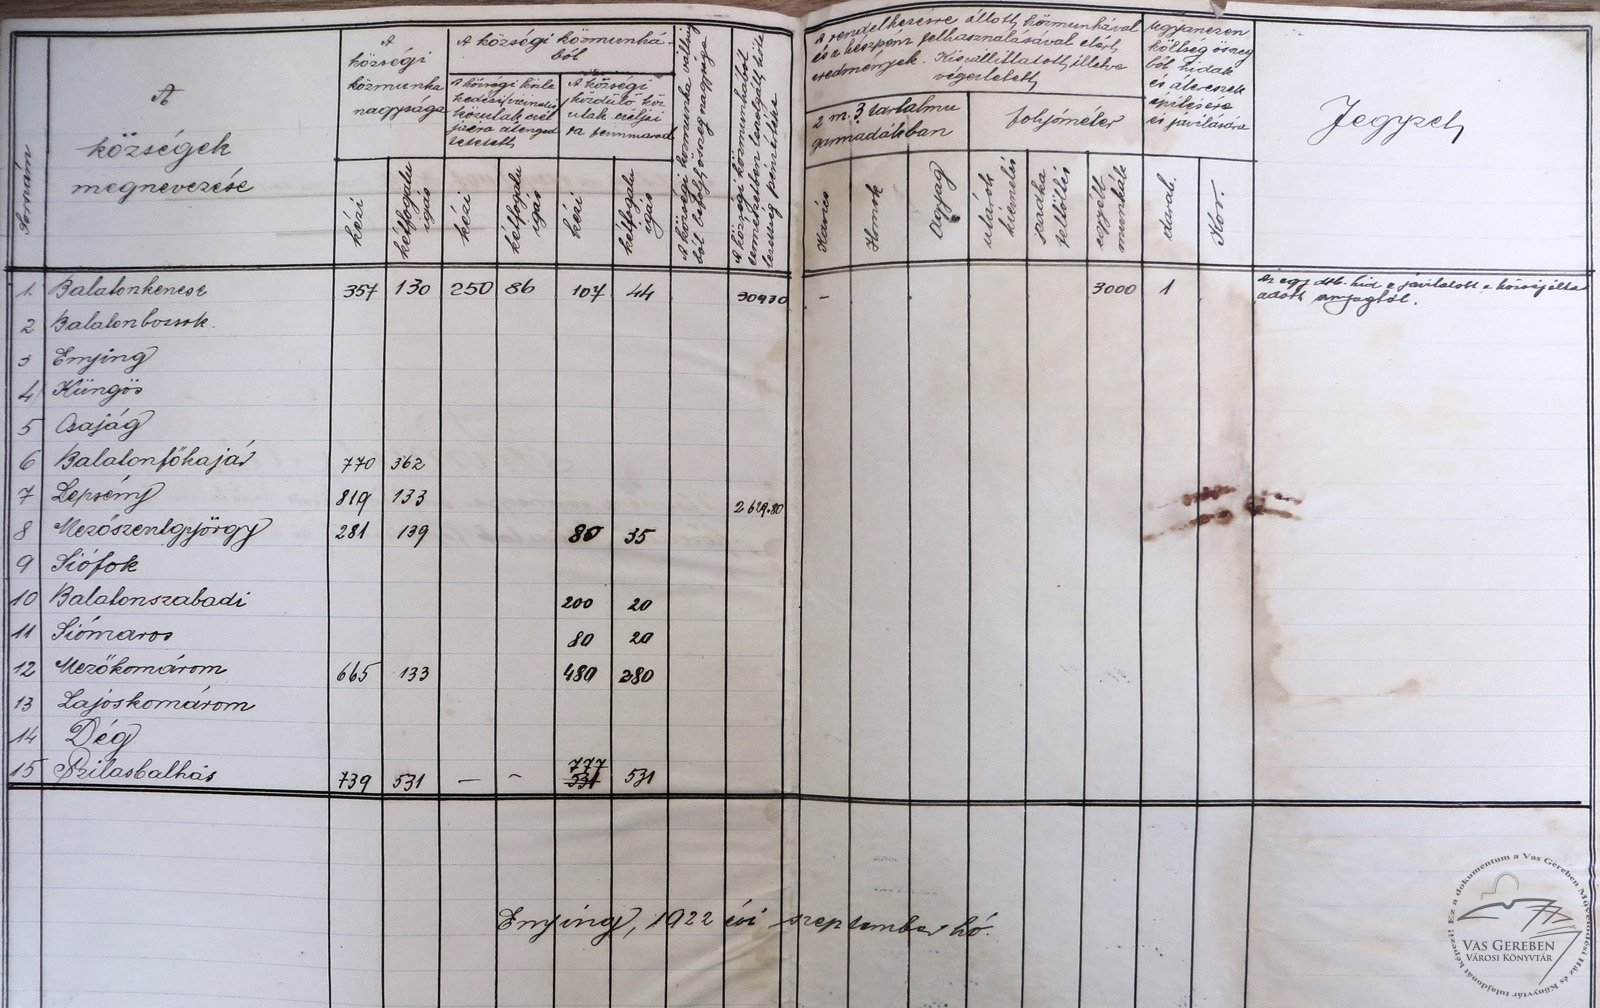 Sorszám
A
községek
megnevezése
A
községi
közmunka
nagysága
kézi
kétfogatu
igás
A községi közmunká-
ból
kézi
kétfogatu
igás
A községi
ra fennmarad
kézi
kétfogatu
igás
A községi közmunka váltság
ból befolyó összeg nagysága
A községi közmunkából
pénzértéke
A rendelkezésre állott közmunkával
és a készpénz felhasználásával elért
eredmények. Kiszállíttatott illetve
végeztetett
2 m.3 tartalmu
garmadákban
Kavics
Homok
Agyag
folyóméter
utárok
kiemelés
padka
feltöltés
egyébb
munkák
Ugyanezen
költség összeg
ből hidak
és átereszek
építésére
és javítására
darab.
Kor.
Jegyzet
1. Balatonkenese 357 130 250 86 107 44 30930 - 3000 1 Az egy db. hid a javitatott a községáltal
adott anyagból.
2 Balatonbozsok
3 Enying
4 Küngös
5 Csajág
6 Balatonfőkajár 770 362
7 Lepsény 819 133 2629.80
8 Mezőszentgyörgy 281 139 80 35
9 Siófok
10 Balatonszabadi 200 20
11 Siómaros 80 20
12 Mezőkomárom 665 133 480 280
13 Lajoskomárom
14 Dég
777
15 Szilasbalhás 739 531 - - 531 531
Enying, 1922 évi szeptember hó.
Ez a dokumentum a Vas Gereben Művelődési Ház és Könyvtár tulajdonát képezi!
VAS GEREBEN
VÁROSI KÖNYVTÁR